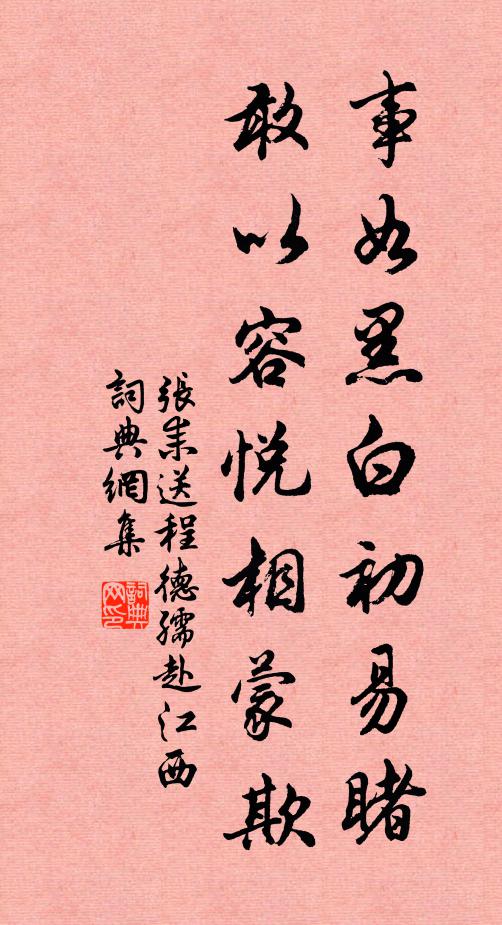 事如黑白初易睹
敢以容悦相蒙欺
張耒送程德孺赴江西
詞典網集
詞典网印